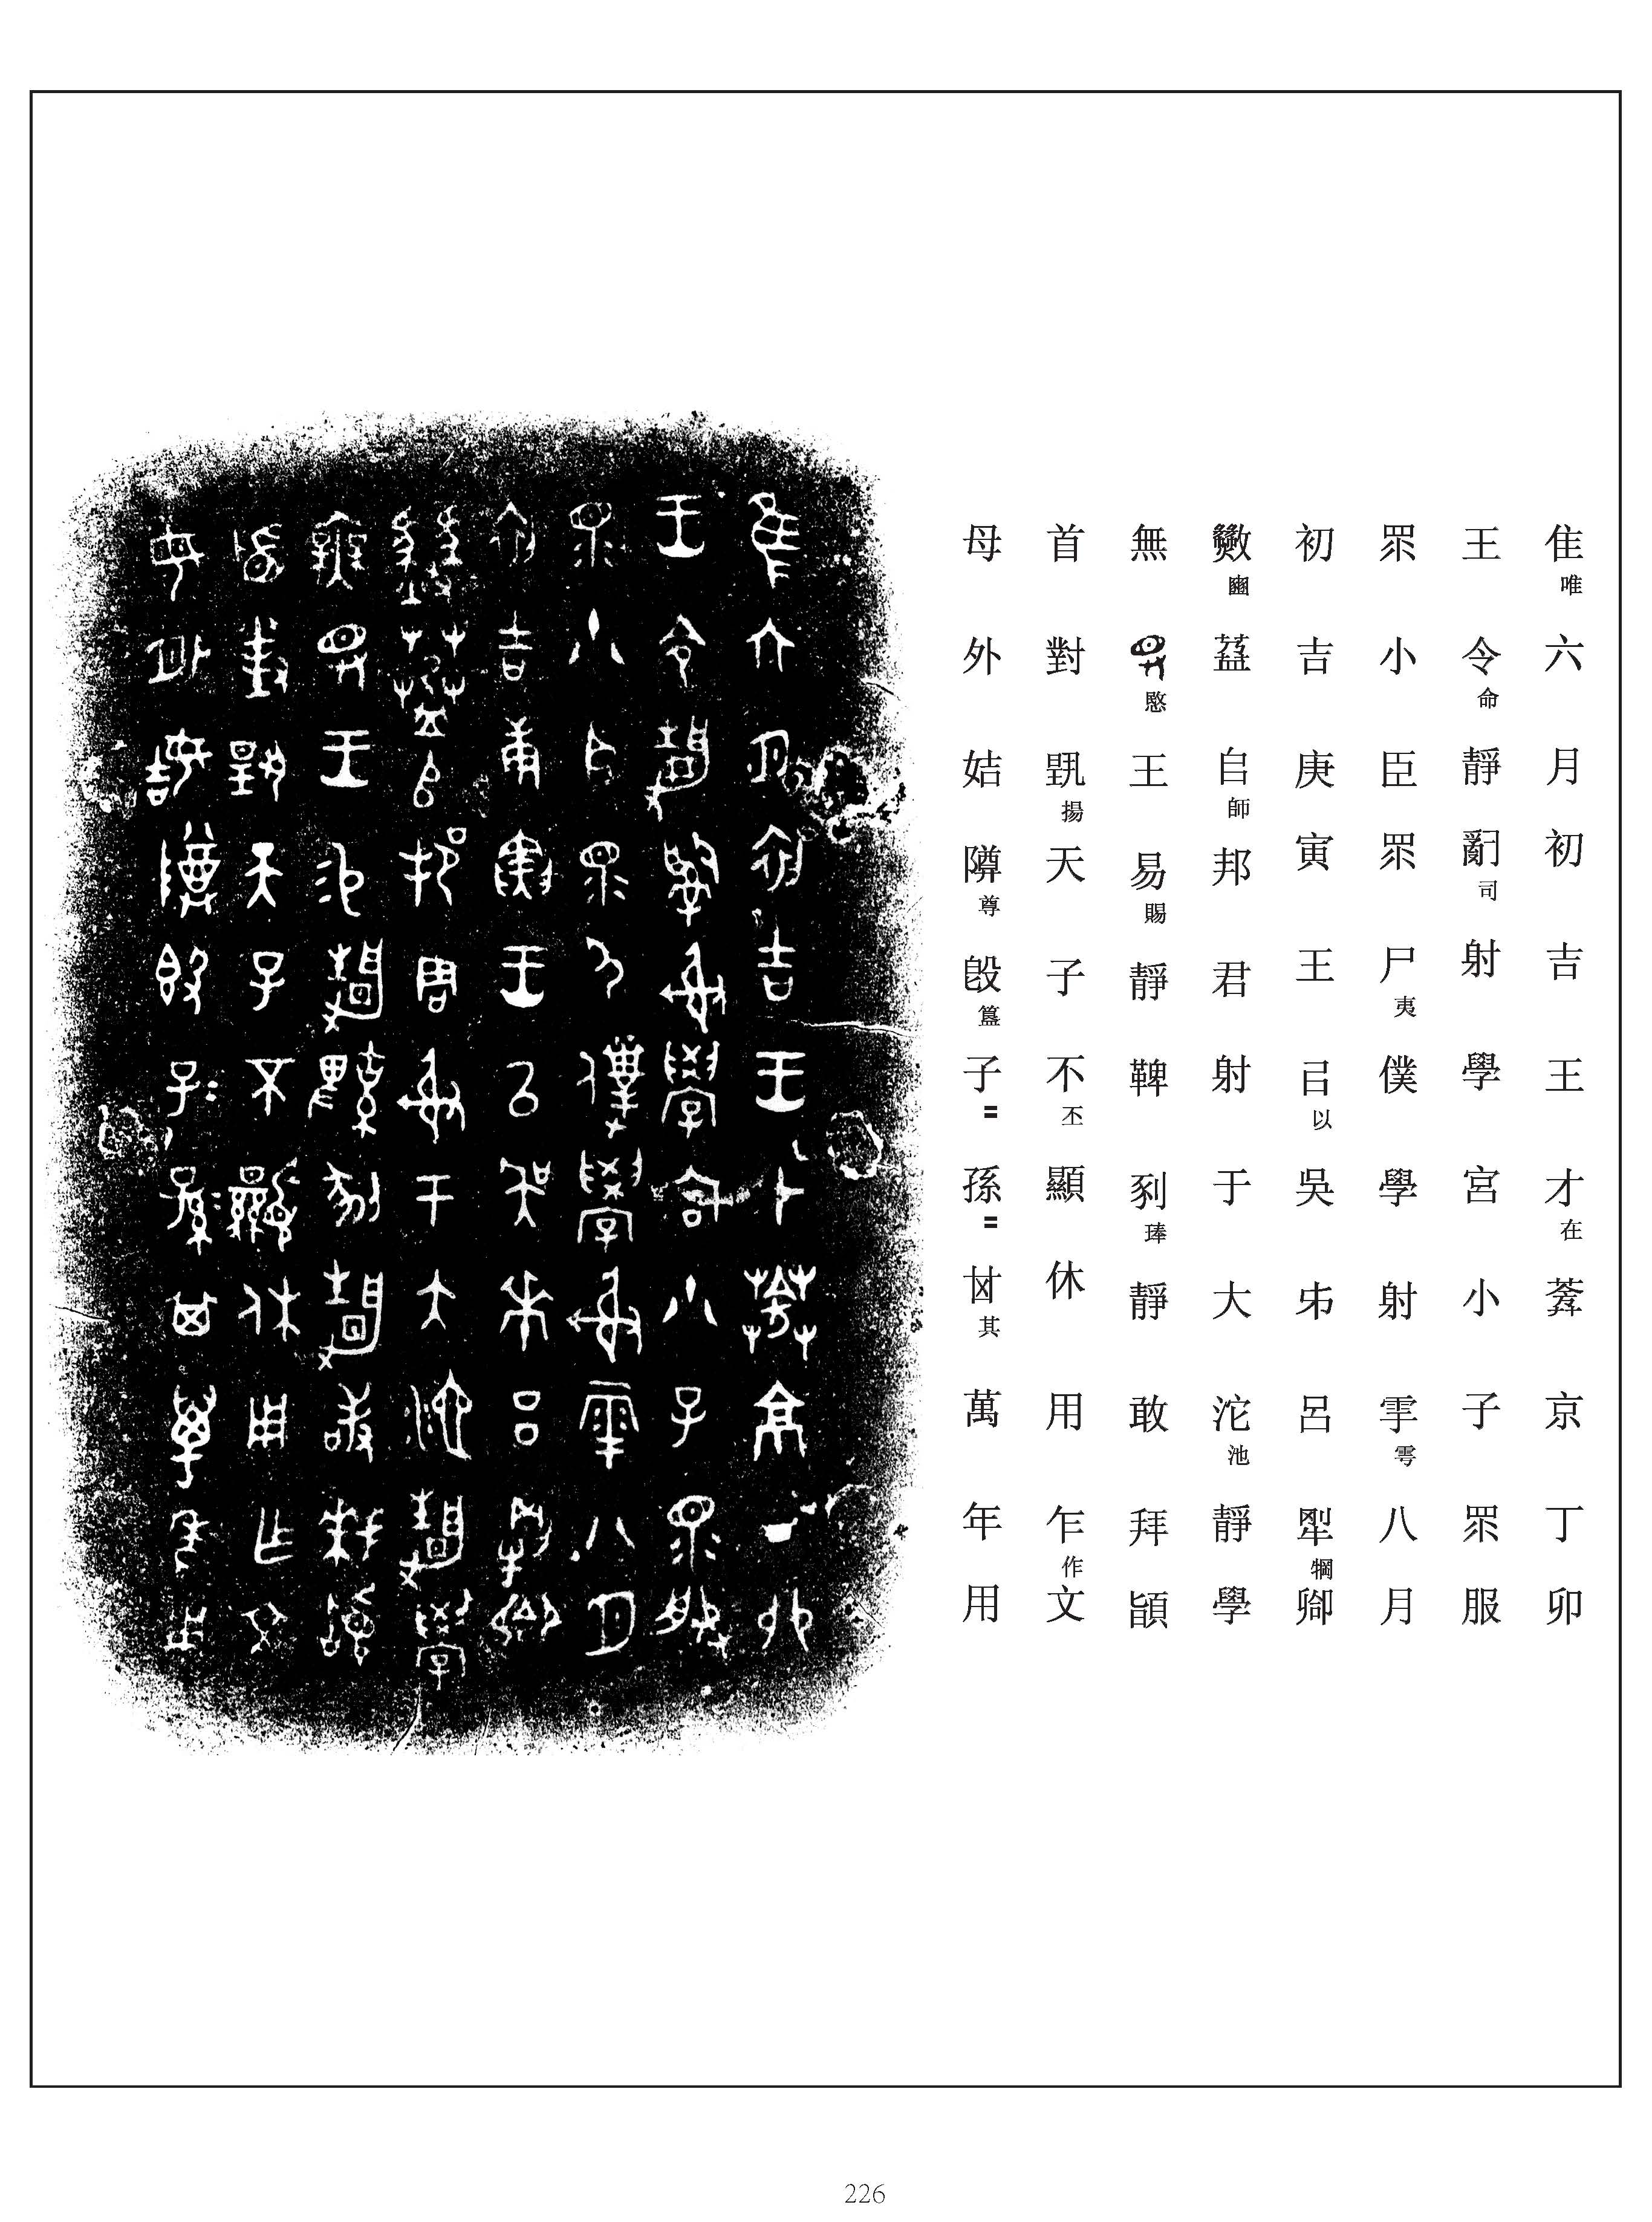 隹唯六月初吉王才在葊京丁卯
王令命靜𤔲司射學宮小子眔服
眔小臣眔尸夷僕學射雩八月
初吉庚寅王㠯以吳呂犅卿
豳𠂤師邦君射于大沱池靜學
無愍王易賜靜鞞琫靜敢拜䭫
首對揚天子不丕顯休用乍作文
母外姞尊簋子〓孫〓其萬年用
226